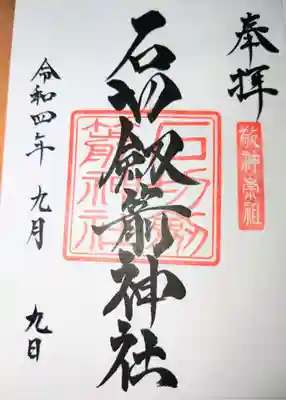 奉拝
敬神崇祖
石切劔箭神社
石切劔箭神社
令和四年 九月 九日